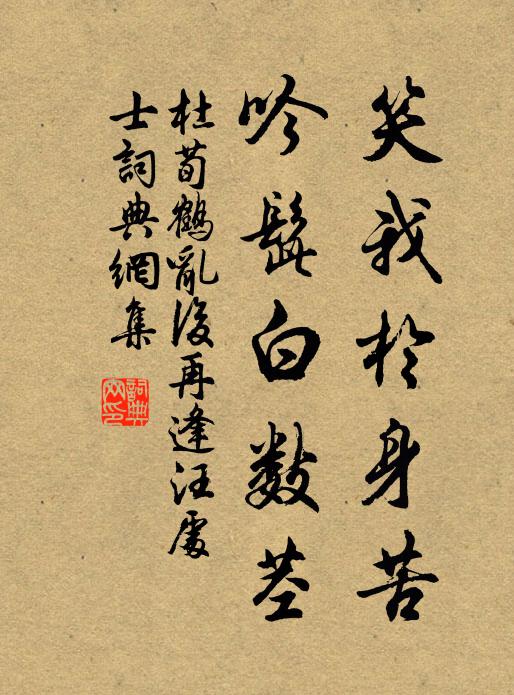 笑我於身苦
吟髭白數莖
杜荀鶴亂後再逢汪處
士詞典網集
詞典
網印